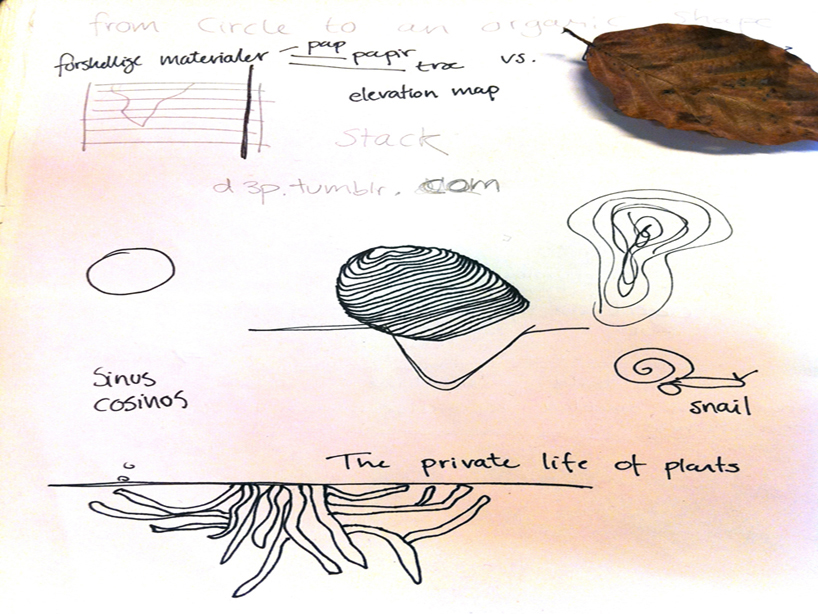 from Circle to an organic shape
forshellige materialer - pap papir træ vs.
elevation map
Stack
d3p.tumblr.com
Sinus
cosinos
snail
The private life of plants